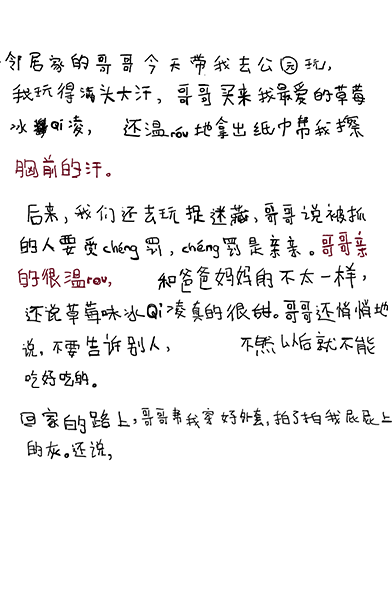 邻居家的哥哥今天带我去公园玩,
我玩得满头大汗,哥哥买来我最爱的草莓
冰Qi凌,还温róu地拿出纸巾帮我擦
胸前的汗。
后来,我们还去玩捉迷藏,哥哥说被抓
的人要受chéng罚,chéng罚是亲亲。哥哥亲
的很温rou,和爸爸妈妈的不太一样,
还说草莓味冰Qi凌真的很甜。哥哥还悄悄地
说,不要告诉别人,不然以后就不能
吃好吃的。
回家的路上,哥哥帮我穿好外套,拍了拍我屁屁上
的灰。还说,